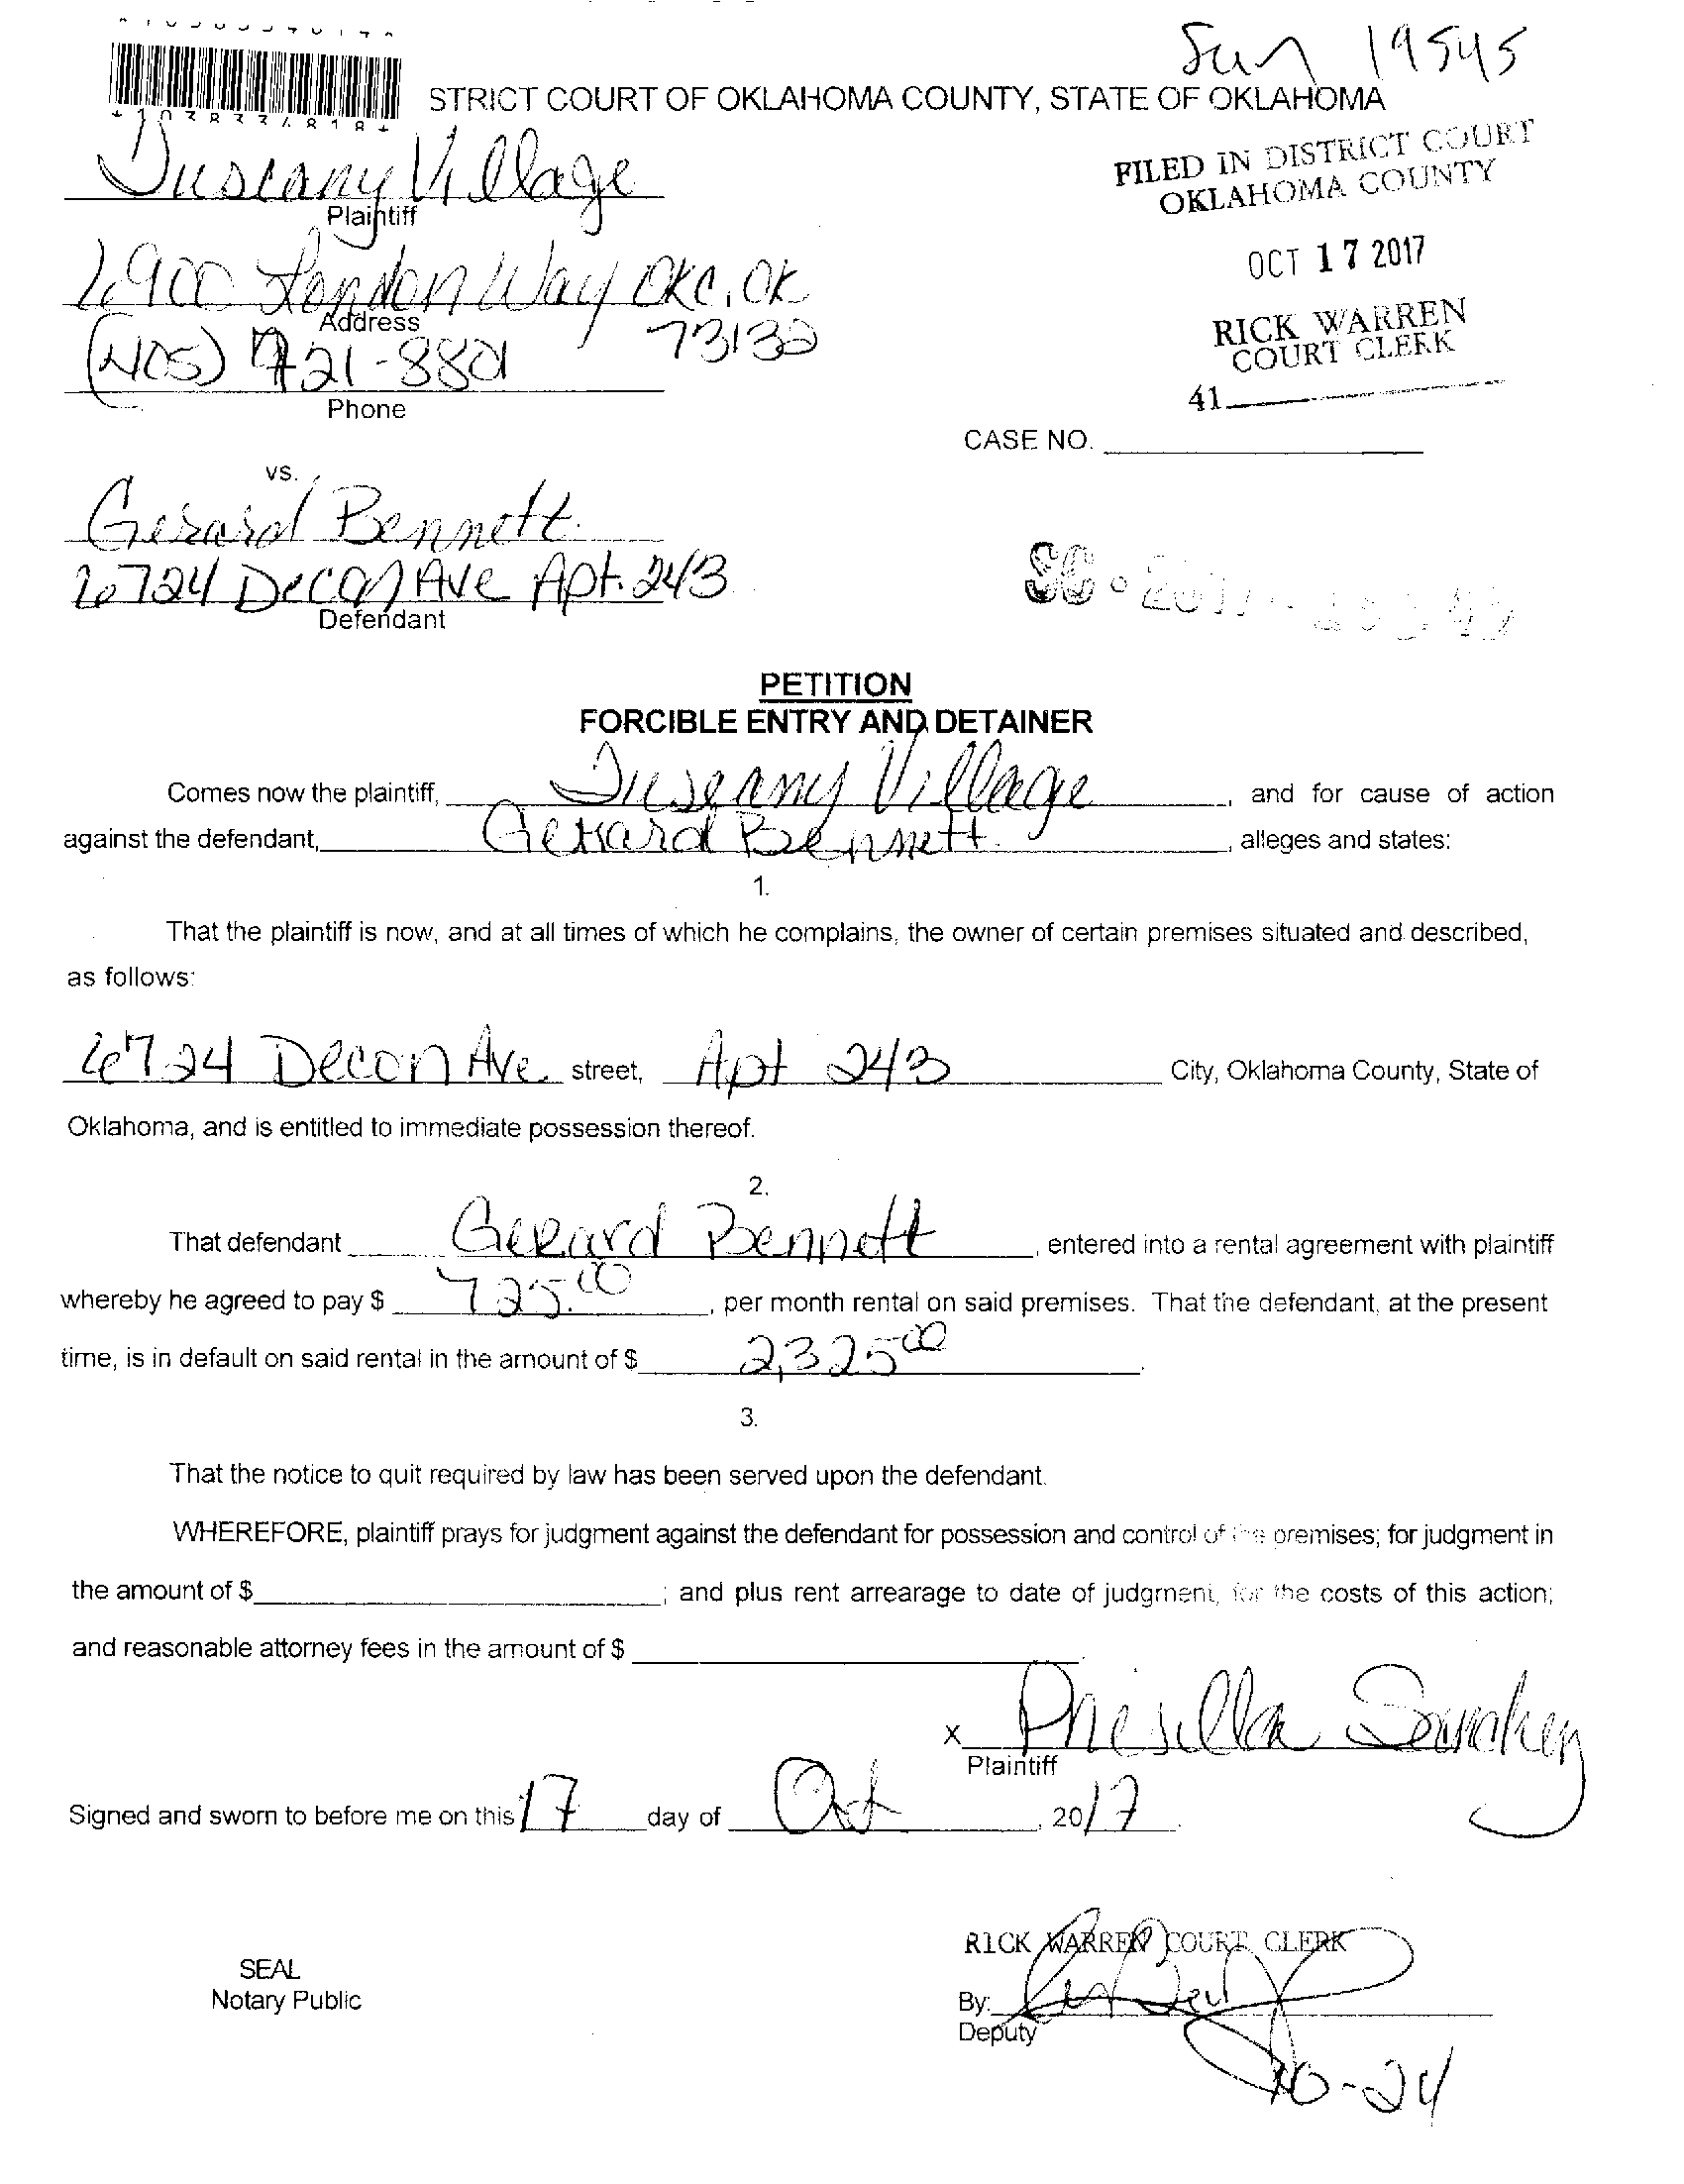 19545
STRICT COURT OF OKLAHOMA COUNTY, STATE OF OKLAHOMA
*1038334818*
FILED IN DISTRICT COURT
OKLAHOMA COUNTY
Tuscany Village
Plaintiff
OCT 17 2017
6900 London Way OKC, OK
Address
73132
RICK WARREN
COURT CLERK
(405) 721-8801
Phone
41
CASE NO.
vs.
Gerard Bennett
6724 Decon Ave Apt. 243
Defendant
SC-2017-
PETITION
FORCIBLE ENTRY AND DETAINER
Comes now the plaintiff, Tuscany Village, and for cause of action
against the defendant, Gerard Bennett, alleges and states:
1.
That the plaintiff is now, and at all times of which he complains, the owner of certain premises situated and described,
as follows:
6724 Decon Ave. street, Apt 243 City, Oklahoma County, State of
Oklahoma, and is entitled to immediate possession thereof.
2.
That defendant Gerard Bennett, entered into a rental agreement with plaintiff
whereby he agreed to pay $ 725.00, per month rental on said premises. That the defendant, at the present
time, is in default on said rental in the amount of $ 2,325 00.
3.
That the notice to quit required by law has been served upon the defendant.
WHEREFORE, plaintiff prays for judgment against the defendant for possession and control of the premises; for judgment in
the amount of $ ; and plus rent arrearage to date of judgment, for the costs of this action;
and reasonable attorney fees in the amount of $ .
x
Plaintiff
Signed and sworn to before me on this 17 day of Oct, 2017.
RICK WARREN COURT CLERK
SEAL
Notary Public
By:
Deputy
10-24